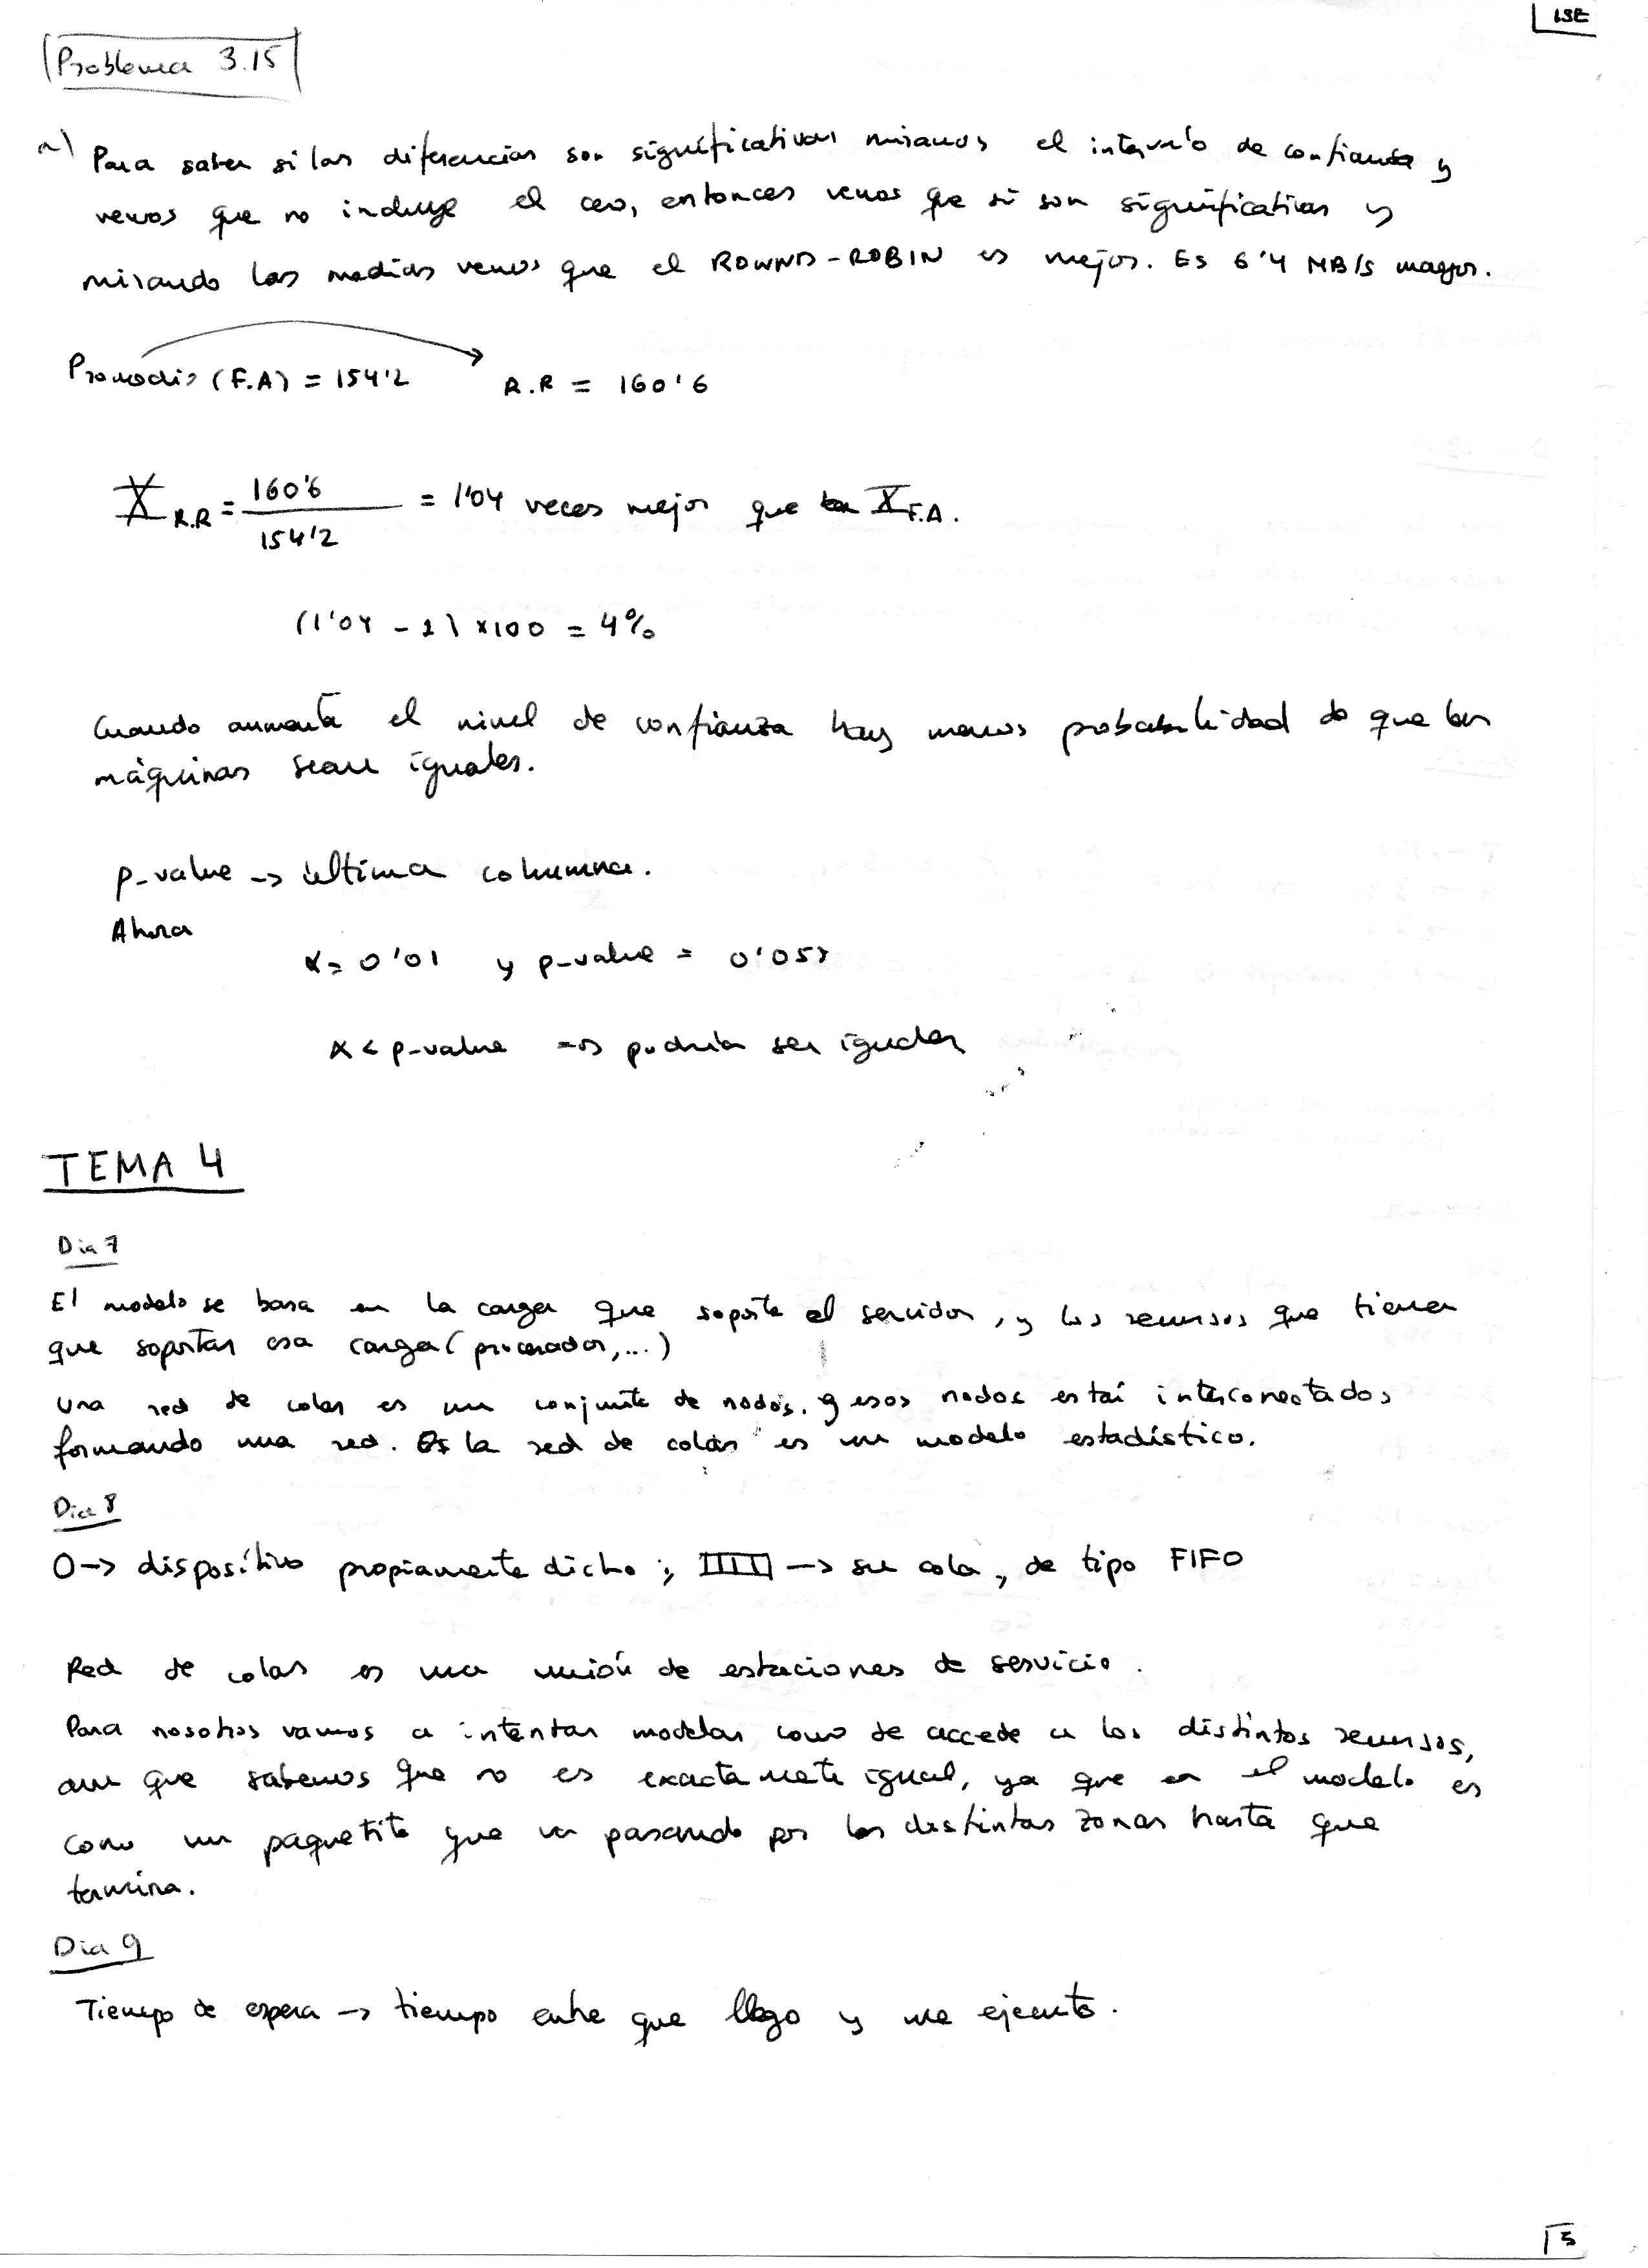 ISE
Problema 3.15
a) Para saber si las diferencias son significativas miramos el intervalo de confianza y
vemos que no incluye el cero, entonces vemos que si son significativas y
mirando las medias vemos que el ROWND-ROBIN es mejor. Es 6'4 MB/s mayor.
Promedio (F.A) = 154'2 R.R = 160'6
X R.R = 160'6 / 154'2 = 1'04 veces mejor que X F.A.
(1'04 - 1) x100 = 4%
Cuando aumenta el nivel de confianza hay menos probabilidad de que las
máquinas sean iguales.
p-value -> última columna.
Ahora
α = 0'01 y p-value =
α < p-value => podrían ser iguales
TEMA 4
Dia 7
El modelo se basa en la carga que soporta el servidor, y los recursos que tienen
que soportar esa carga (procesador,...)
Una red de colas es un conjunto de nodos, y esos nodos están interconectados
formando una red. La red de colas es un modelo estadístico.
Dia 8
O -> dispositivo propiamente dicho ; -> su cola, de tipo FIFO
Red de colas es una unión de estaciones de servicio.
Para nosotros vamos a intentar modelar como se accede a los distintos recursos,
aun que sabemos que no es exactamente igual, ya que en el modelo es
como un paquetito que va pasando por las distintas zonas hasta que
termina.
Dia 9
Tiempo de espera -> tiempo entre que llego y me ejecuto.